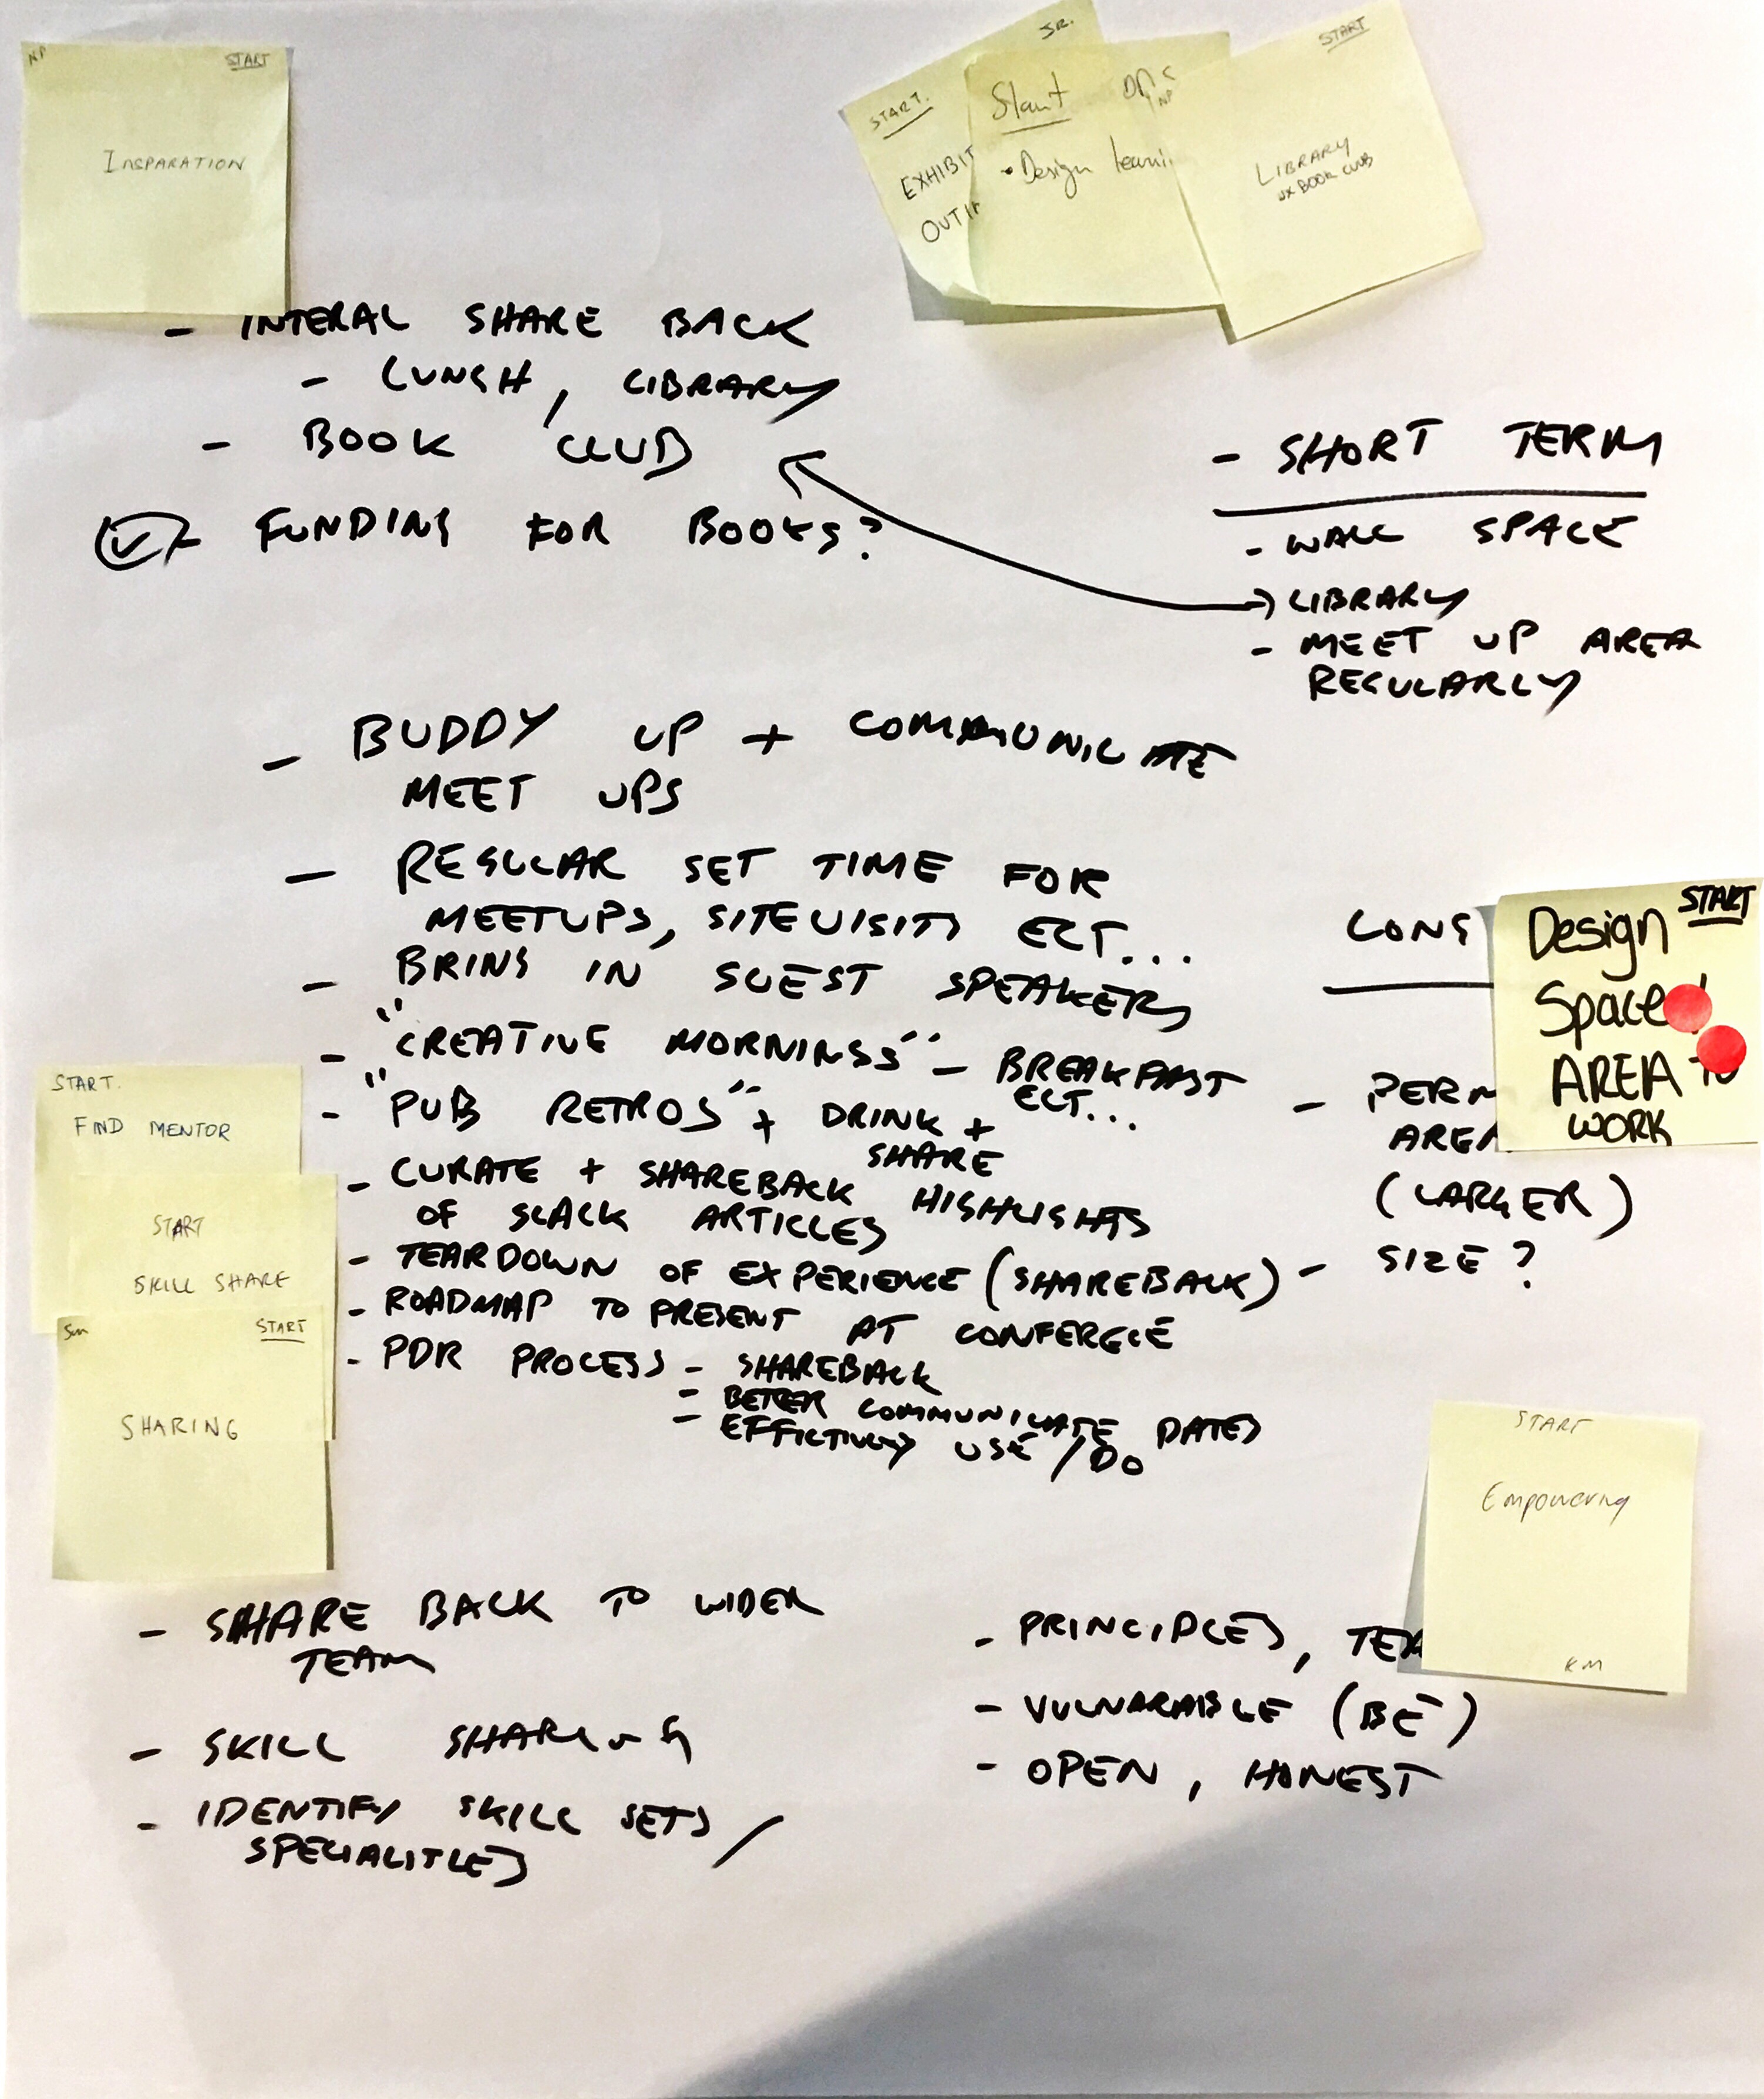 NP START
INSPARATION
JR.
START.
EXHIBIT
OUT
Start
• Design
START
LIBRARY
UX BOOK CLUB
- INTERAL SHARE BACK
- LUNCH, LIBRARY
- BOOK CLUB
FUNDING FOR BOOKS?
- SHORT TERM
- WALL SPACE
LIBRARY
- MEET UP AREA
REGULARLY
- BUDDY UP + COMMUNICATE
MEET UPS
- REGULAR SET TIME FOR
MEETUPS, SITE VISITS ECT...
- BRING IN GUEST SPEAKERS
- "CREATIVE MORNINGS" - BREAKFAST
ECT...
- "PUB RETROS" + DRINK +
SHARE
- CURATE + SHAREBACK HIGHLIGHTS
OF SLACK ARTICLES
- TEARDOWN OF EXPERIENCE (SHAREBACK)
- ROADMAP TO PRESENT AT CONFERECE
- PDR PROCESS - SHAREBACK
- BETER COMMUNICATE DATES
- EFFICTIVELY USE / DO
LONG
START
Design
Space!
AREA to
WORK
- PERM
AREA
(LARGER)
- SIZE?
START.
FIND MENTOR
START
SKILL SHARE
Sm START
SHARING
START
Empowering
KM
- SHARE BACK TO WIDER
TEAM
- SKILL SHARING
- IDENTIFY SKILL SETS /
SPECIALITIES
- PRINCIPLES, TEA
- VULNARABLE (BE)
- OPEN, HONEST